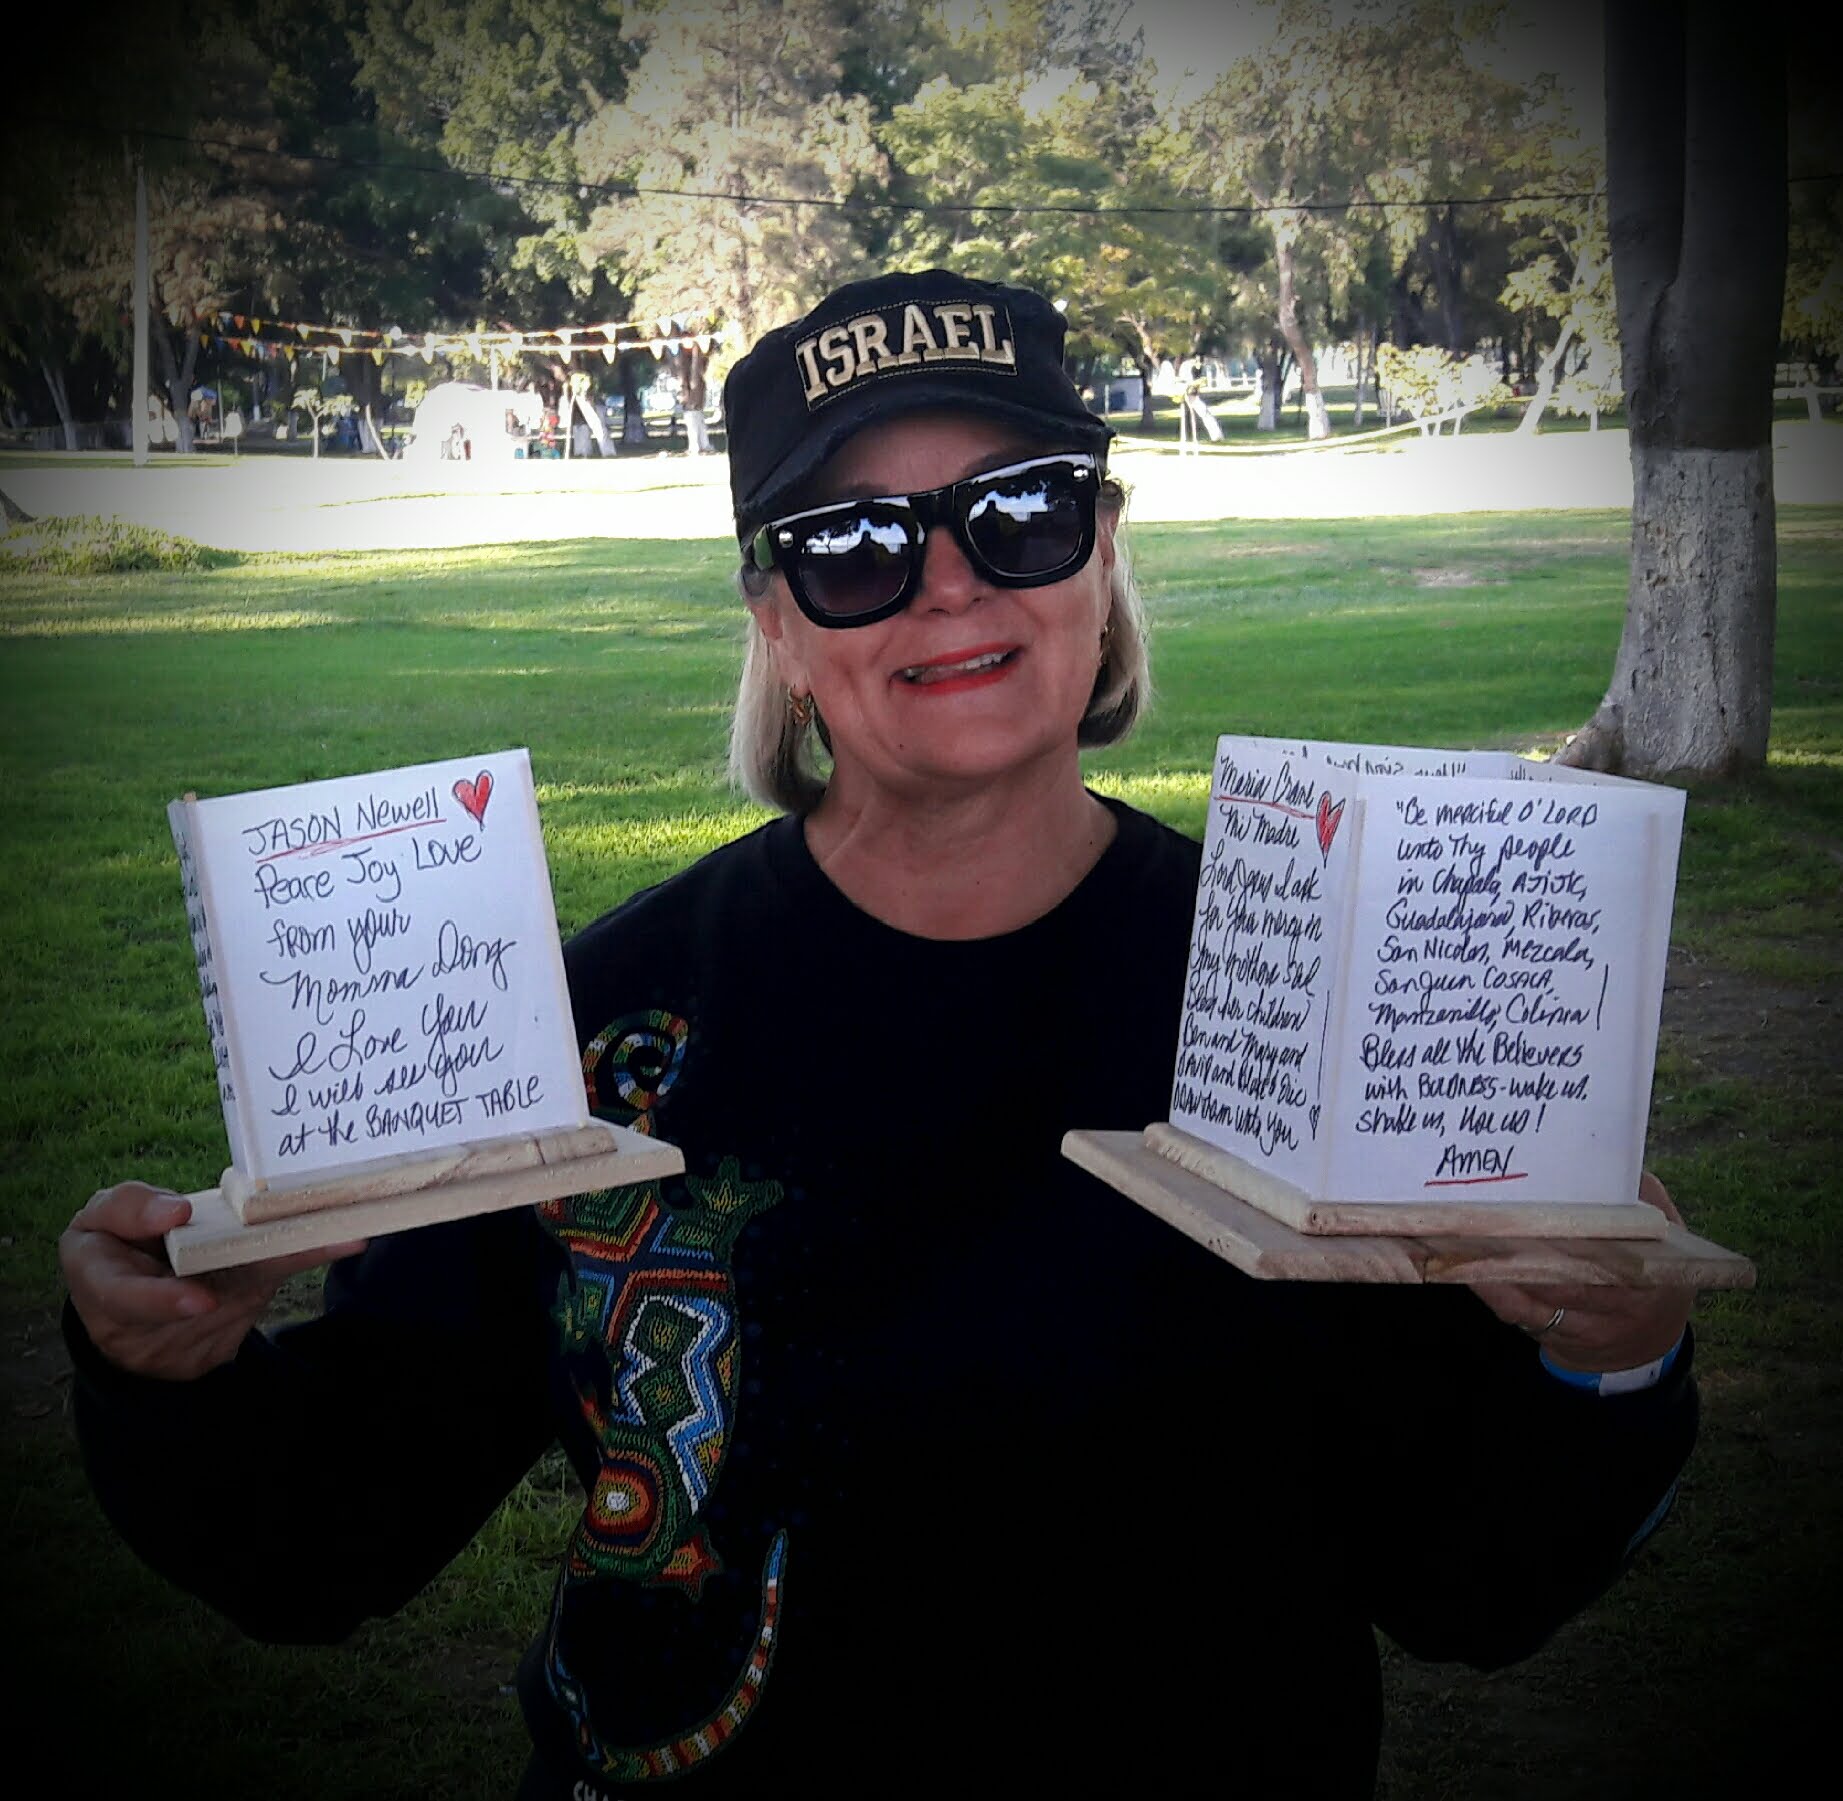 ISRAEL
JASON Newell
Peace Joy Love
from your
Momma Dong
I Love You
I will see you
at the BANQUET TABLE
Maria Crane
Mi Madre
Lord Jesus I ask
for Your mercy in
my mothers
Bless her children
Ben and Mary and
David and Eric
with You
"Be merciful O' LORD
unto Thy people
in Chapala, AJIJIC,
Guadalajara, Riberas,
San Nicolas, Mezcala,
San Juan COSALA,
Manzanillo, Colima
Bless all the Believers
with BOLDNESS - wake us.
shake us, use us!
AMEN